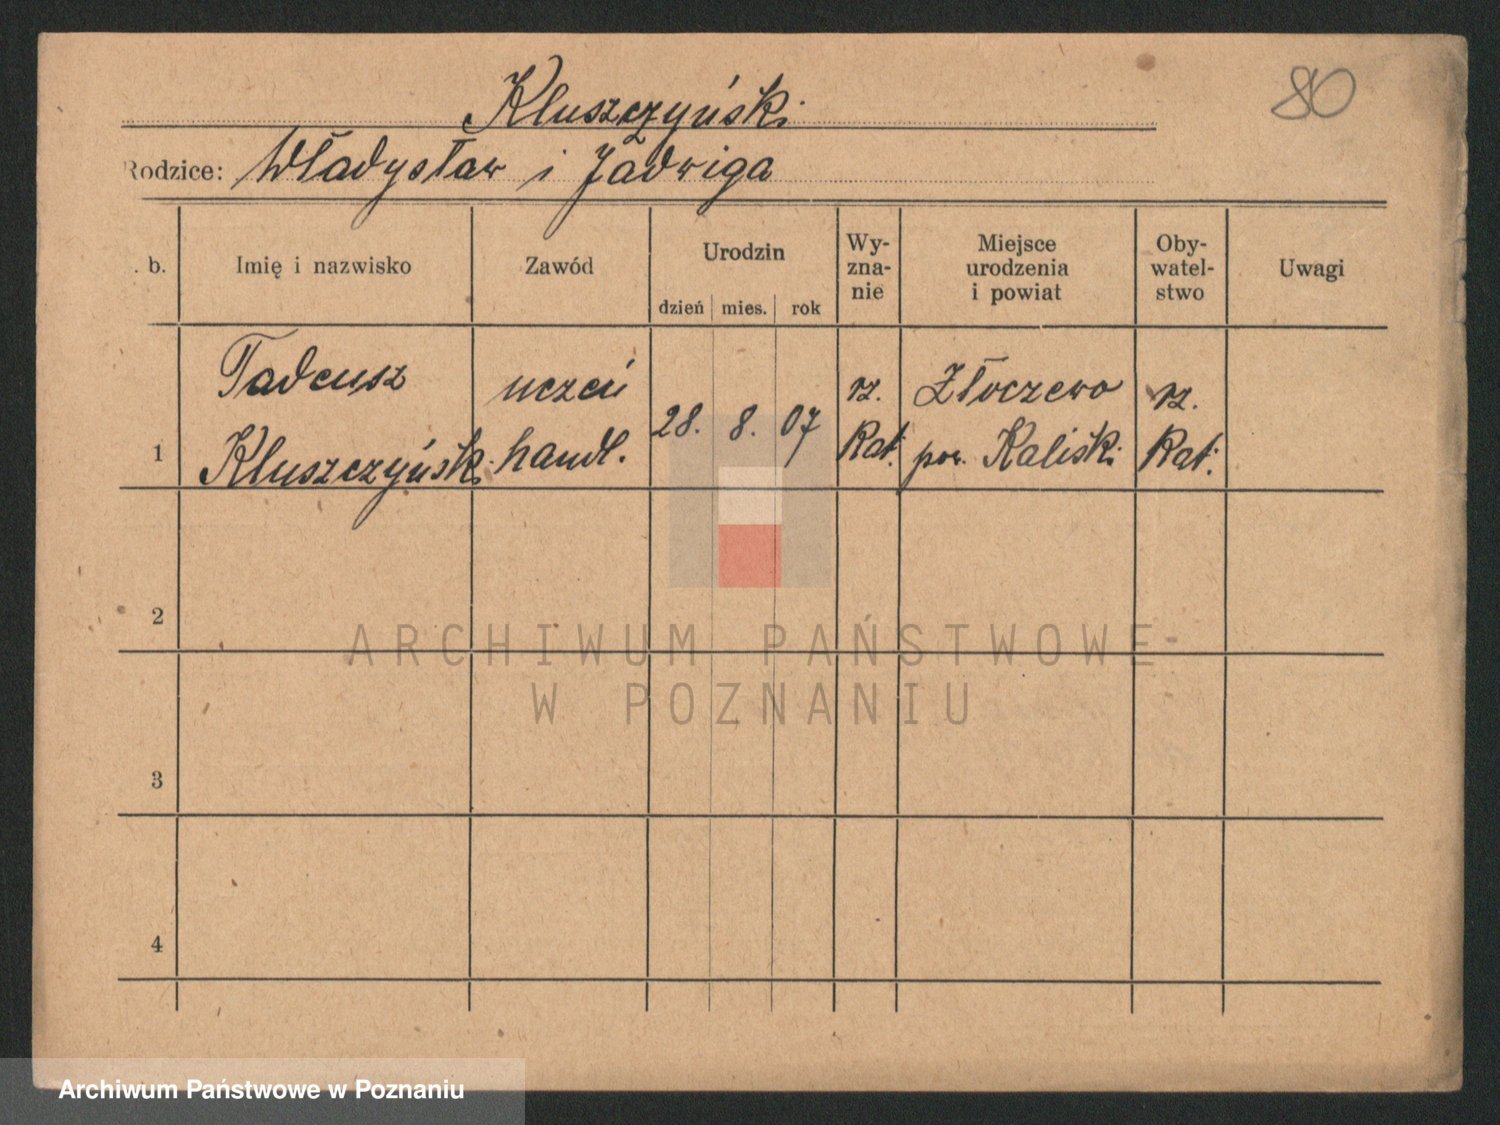 80
Kluszczyński
Rodzice: Władysław i Jadwiga
. b.
Imię i nazwisko
Zawód
Urodzin
dzień mies. rok
Wy-
zna-
nie
Miejsce
urodzenia
i powiat
Oby-
watel-
stwo
Uwagi
1
Tadeusz
Kluszczyński
uczeń
handl.
28. 8. 07
rz.
Kat.
Złoczewo
pow. Kaliski
rz.
Kat.
2
3
4
ARCHIWUM PAŃSTWOWE
W POZNANIU
Archiwum Państwowe w Poznaniu